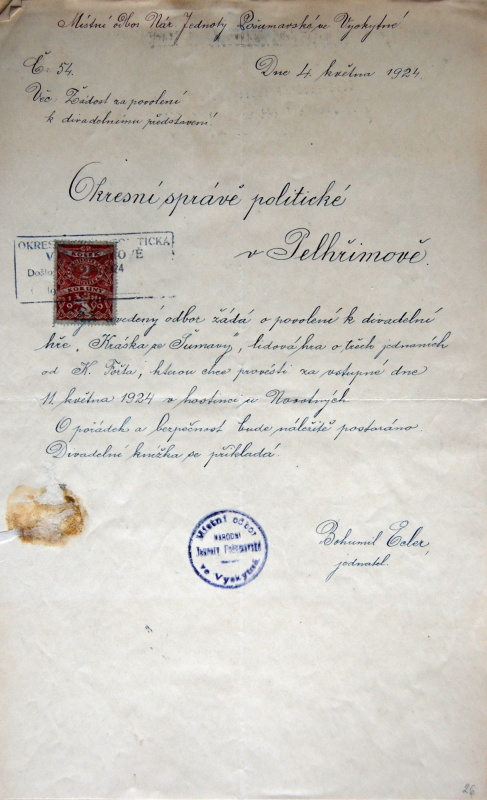 Místní odbor Nár. Jednoty Pošumavské ve Vyskytné.
Č. 54.
Dne 4. května 1924.
Věc: Žádost za povolení
k divadelnímu představení
Okresní správě politické
v Pelhřimově.
OKRES POLITICKÁ
V
Došlo 24
KOLEK
2
KORUNY
19
uvedený odbor žádá o povolení k divadelní
hře „Kráska ze Šumavy“, lidová hra o třech jednáních
od K. Fořta, kterou chce provésti za vstupné dne
11. května 1924 v hostinci u Novotných.
O pořádek a bezpečnost bude náležitě postaráno.
Divadelní knížka se přikládá.
Místní odbor
NÁRODNÍ
Jednoty Pošumavské
ve Vyskytné
Bohumil Ecler,
jednatel.
26